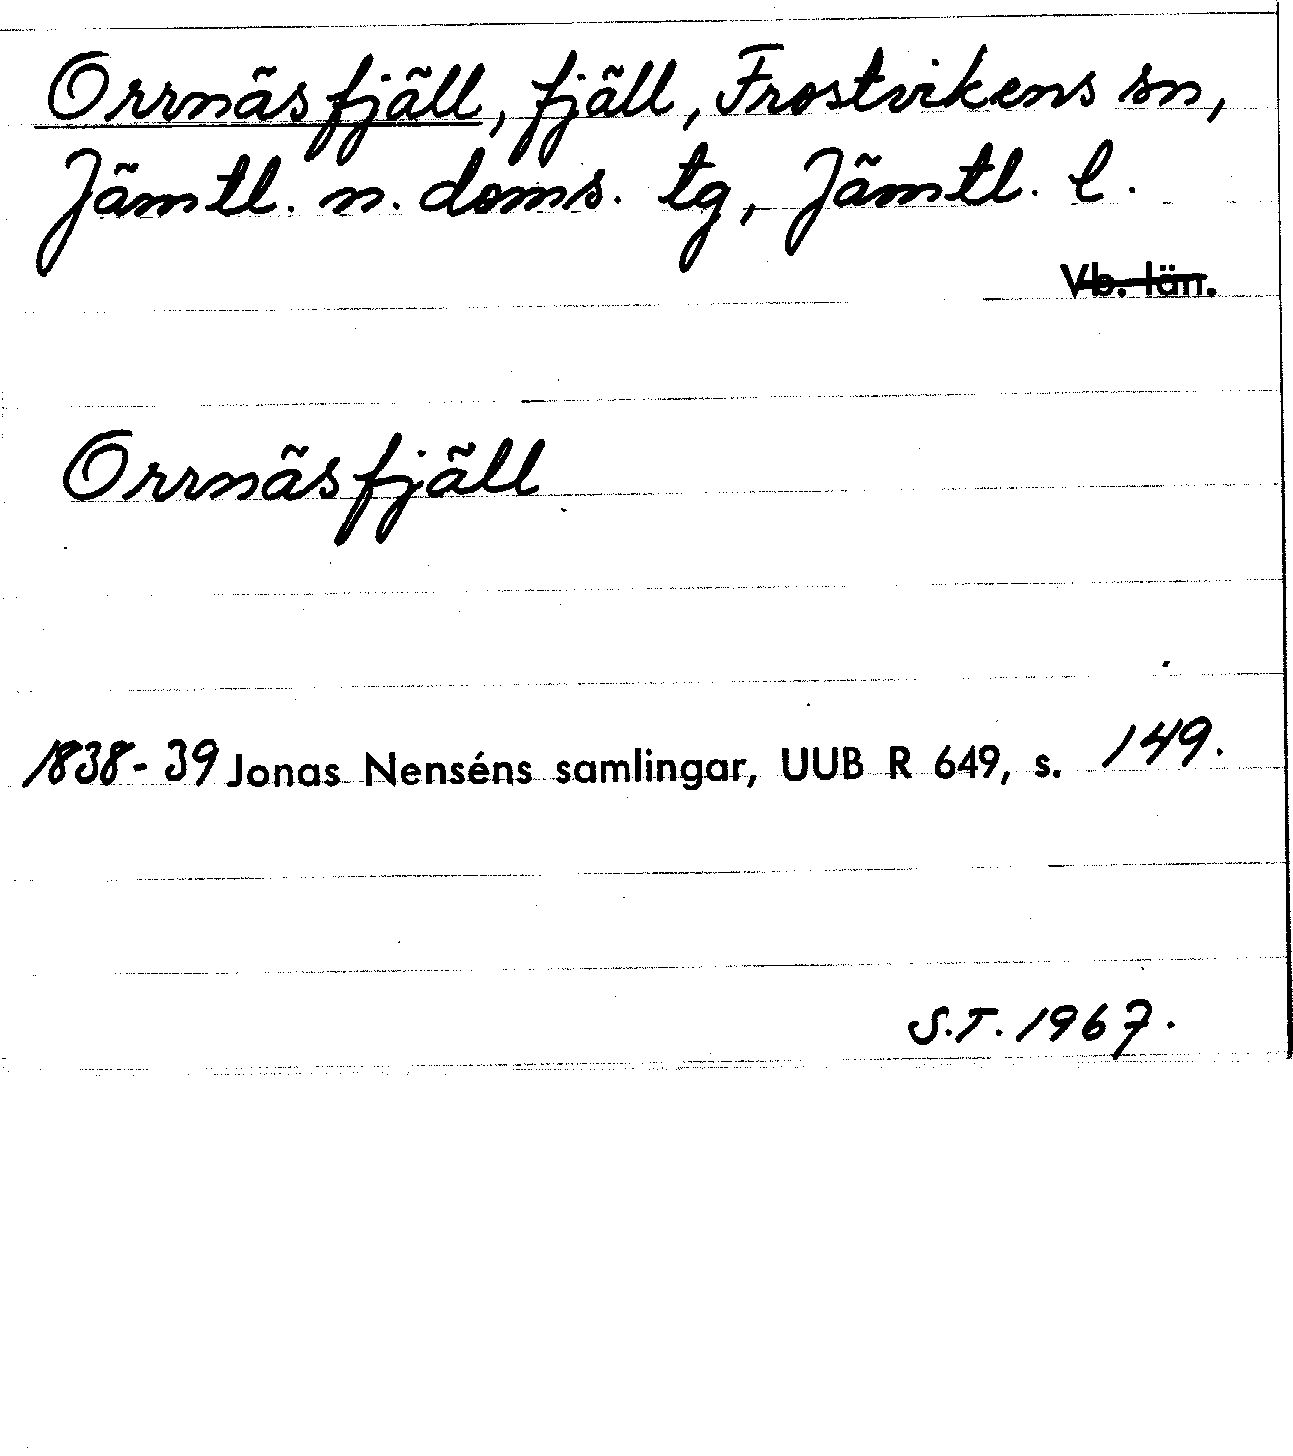 Orrnäsfjäll, fjäll, Frostvikens sn,
Jämtl. n. doms. tg, Jämtl. l.
Vb. län.
Orrnäsfjäll
1838-39 Jonas Nenséns samlingar, UUB R 649, s. 149.
S.T. 1967.